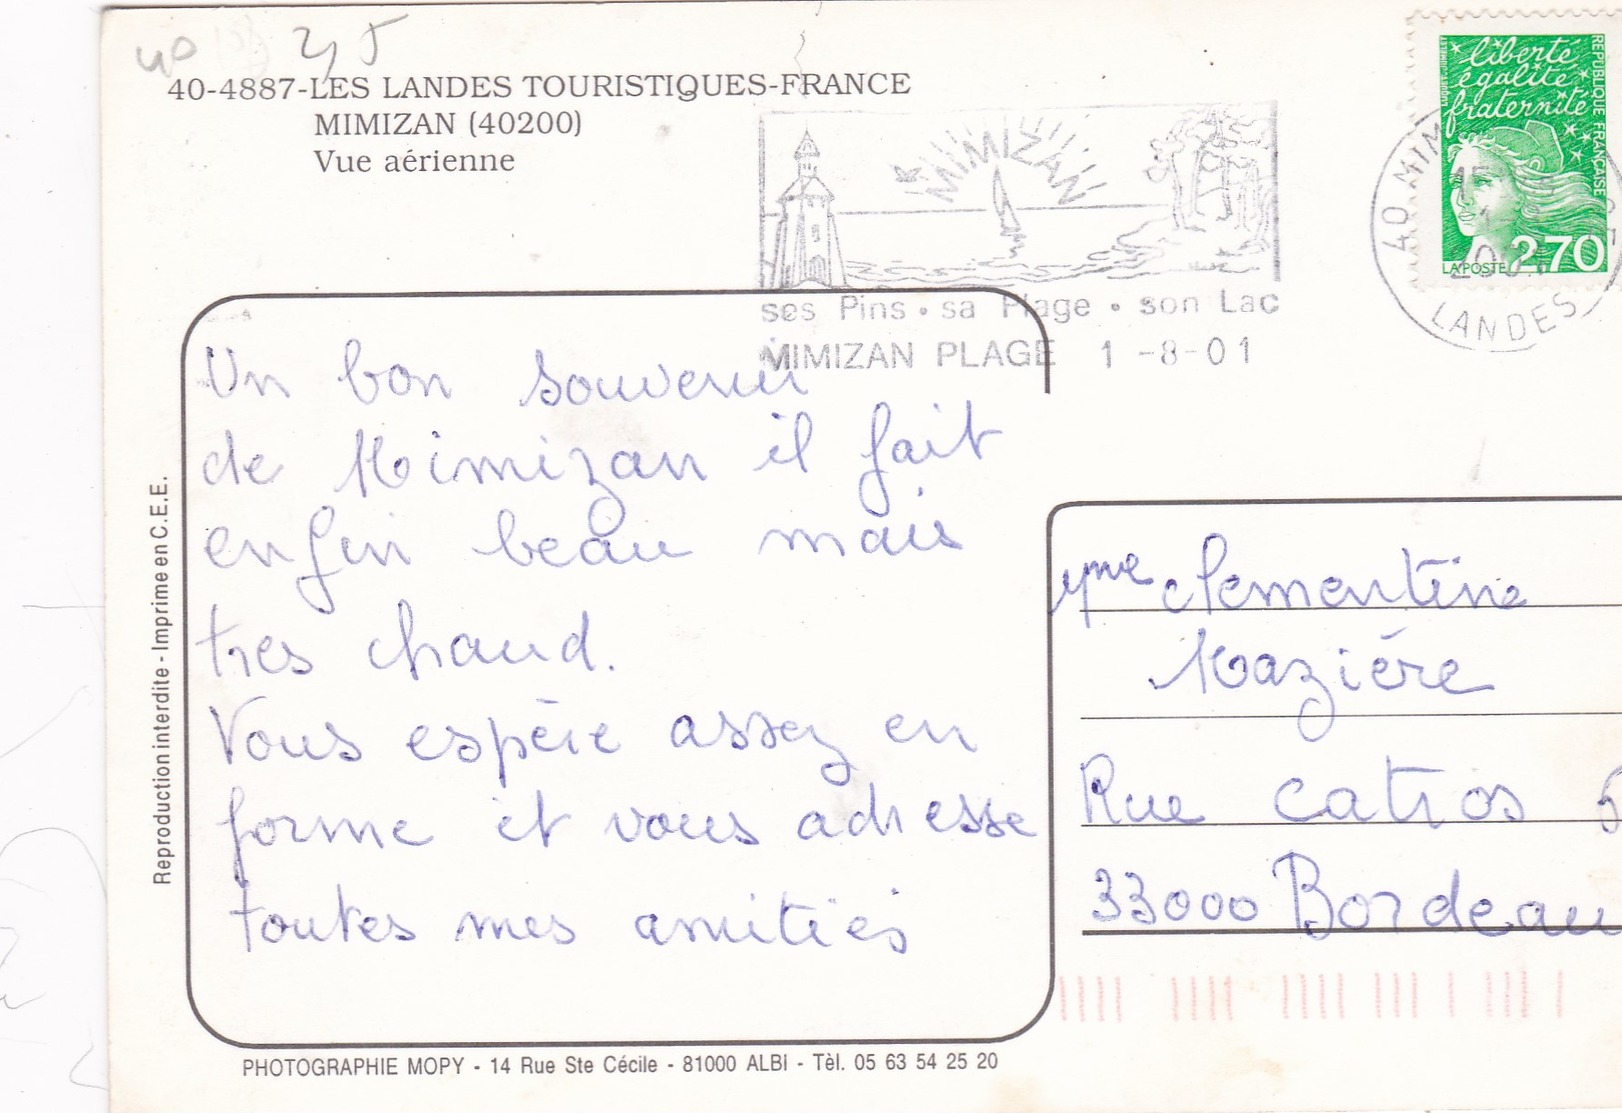 40 2,5
40-4887-LES LANDES TOURISTIQUES-FRANCE
MIMIZAN (40200)
Vue aérienne
MIMIZAN
ses Pins • sa Plage • son Lac
MIMIZAN PLAGE 1 -8-01
liberté
égalité
fraternité
REPUBLIQUE FRANÇAISE
LA POSTE 2,70
40 MIM
LANDES
Un bon souvenir
de Mimizan il fait
enfin beau mais
tres chaud.
Vous espère assez en
forme et vous adresse
toutes mes amitiés
Mme Clementine
Mazière
Rue Catros
33000 Bordeau
Reproduction interdite - Imprime en C.E.E.
PHOTOGRAPHIE MOPY - 14 Rue Ste Cécile - 81000 ALBI - Tèl. 05 63 54 25 20